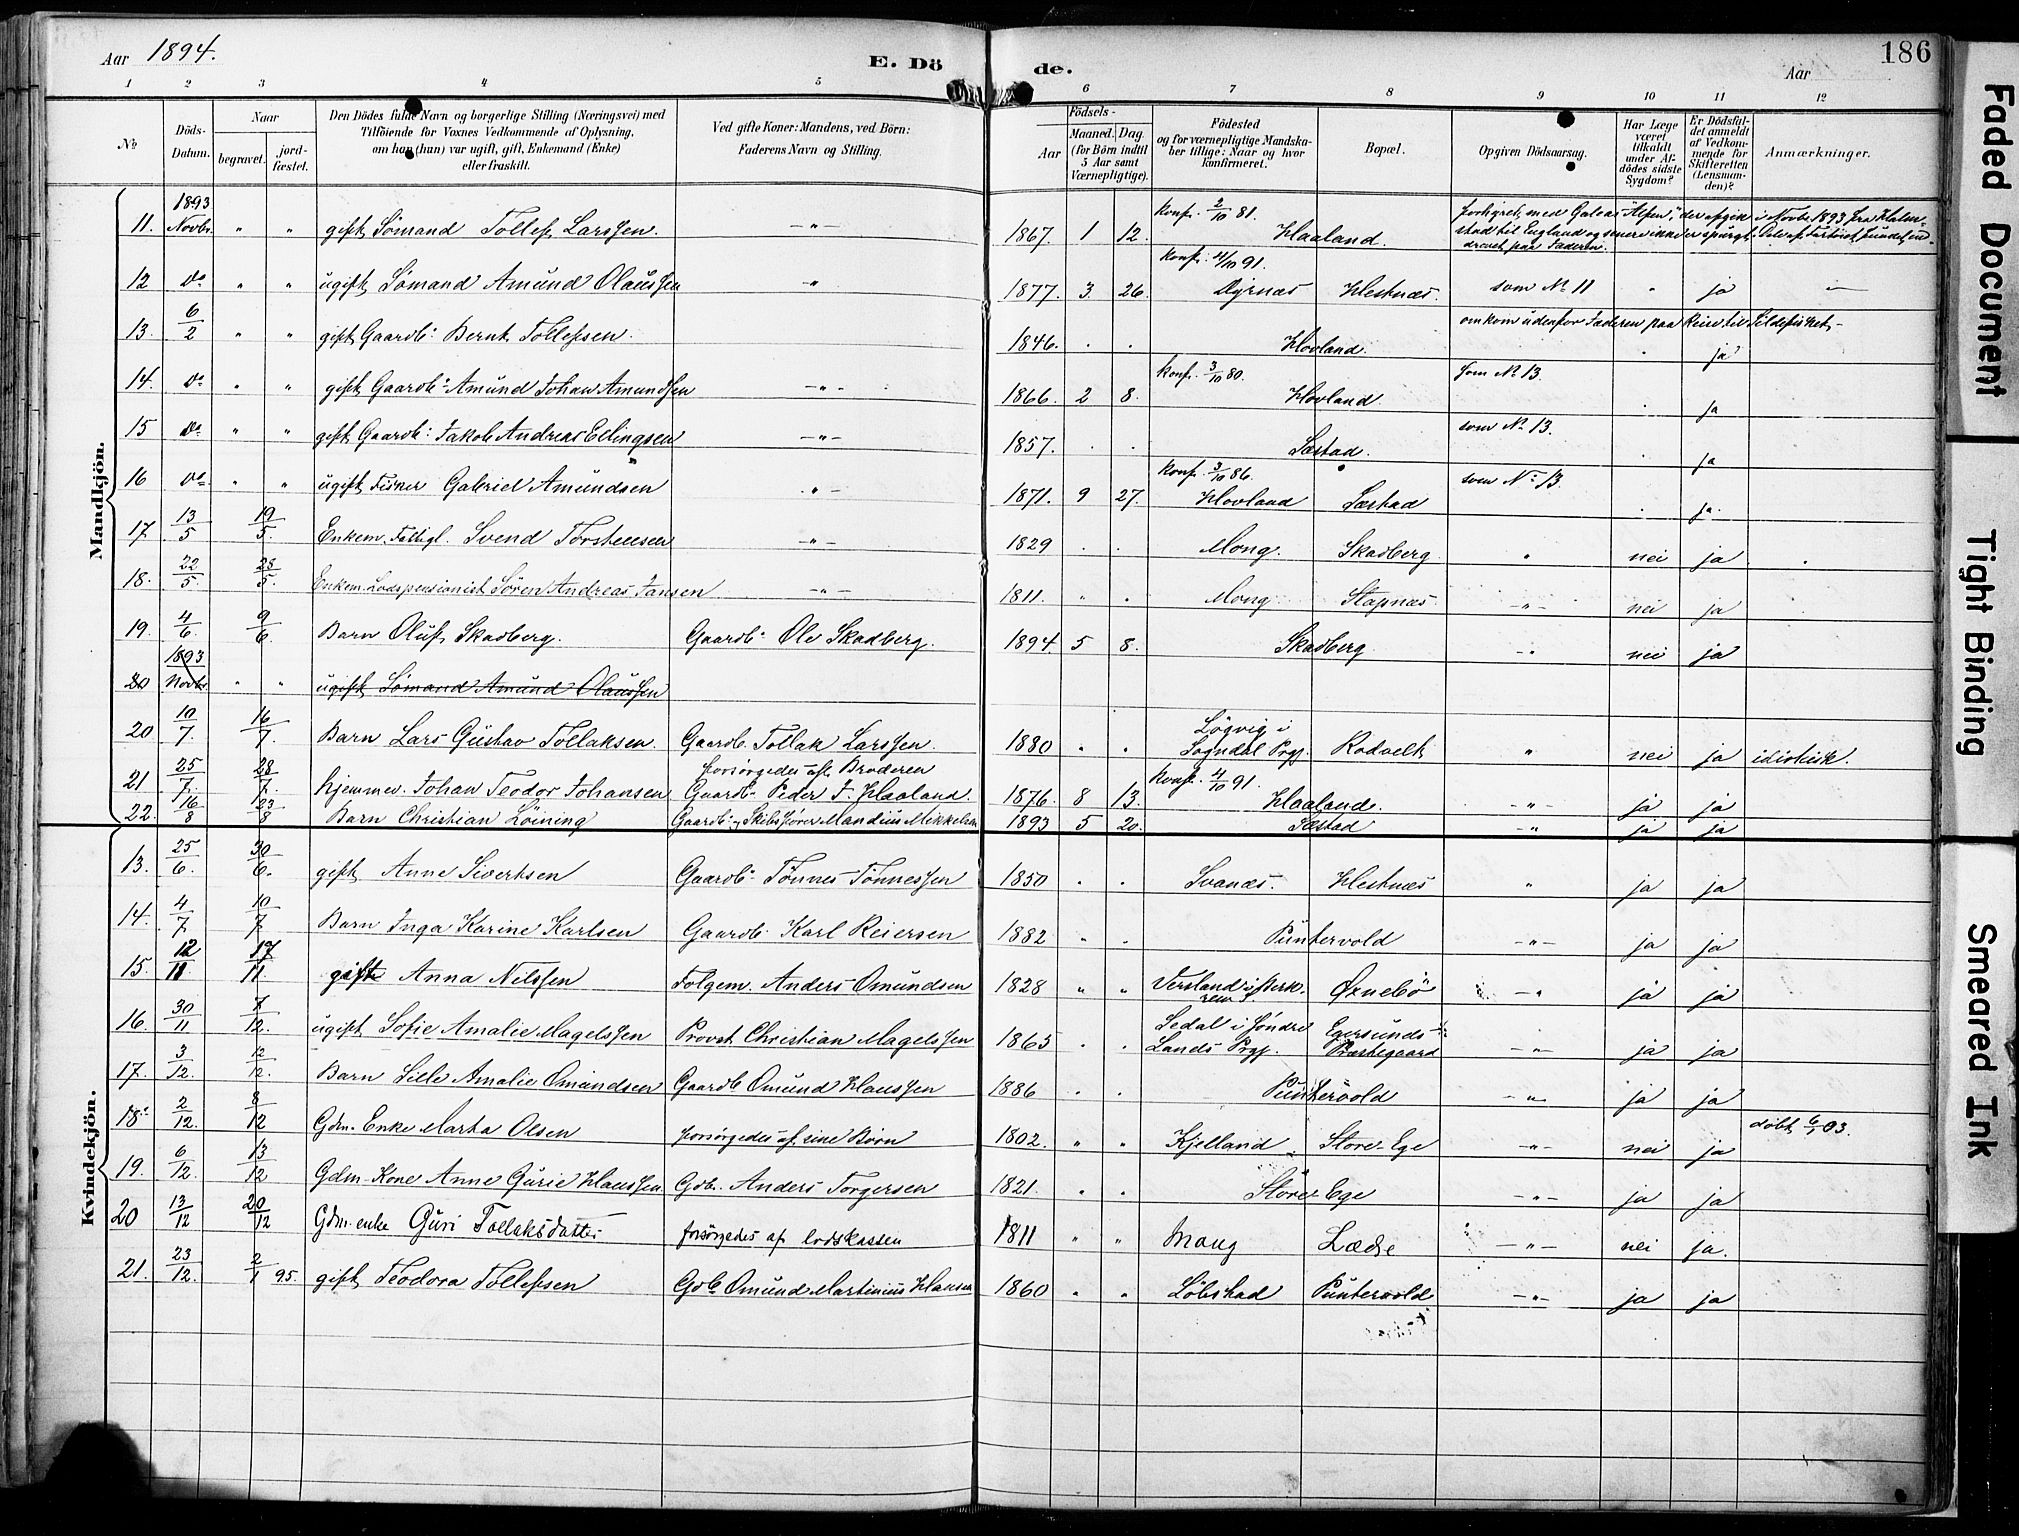 Aar 1894.
E. Döde.
Aar
186
1 2 3 4 5 6 7 8 9 10 11 12
No
Döds-Datum.
Naar
begravet.
jord-fæstet.
Den Dödes fulde Navn og borgerlige Stilling (Næringsvei) med
Tilföiende for Voxnes Vedkommende af Oplysning,
om han (hun) var ugift, gift, Enkemand (Enke)
eller fraskilt.
Ved gifte Koner: Mandens, ved Börn:
Faderens Navn og Stilling.
Födsels-
Aar
Maaned. Dag.
(for Börn indtil
5 Aar samt
Værnepligtige).
Födested
og for værnepligtige Mandska-
ber tillige: Naar og hvor
konfirmeret.
Bopæl.
Opgiven Dödsaarsag.
Har Læge
været
tilkaldt
under Af-
dödes sidste
Sygdom?
Er Dödsfal-
det anmeldt
af Vedkom-
mende for
Skifteretten
(Lensman-
den)?
Anmærkninger.
Mandkjön.
11. 1893 Novbr. " " gift Sømand Tollef Larssen. -"- 1867. 1 12. konf. 2/10 81. Haaland. forligret med Galeas "Alfen", der afgik i Novbr 1893 fra Halm-
stad til England og senere ikke er spurgt. Dele af Fartøiet fundet in-
drevet paa Jæderen.
12 do " " ugift Sømand Amund Olaussen " 1877. 3. 26. konf. 4/10 91. Dyrnæs Hestnæs. som No 11 " ja —
13. 6/2 " " gift Gaardb: Bernt Tollefsen. 1846. . . Hovland. omkom udenfor Jæderen paa Reise til Sildefisket - . ja
14. do " " gift Gaardb: Amund Johan Amundsen -"- 1866. 2 8. konf. 3/10 80. Hovland. som No 13. . ja
15 do " " gift Gaardb: Jakob Andreas Edlingsen -"- 1857. . . Sæstad. som No 13. . ja
16 do " " ugift Fisker Gabriel Amundsen -"- 1871. 9 27. konf. 3/10 86. Hovland Sæstad som No 13. . ja.
17. 13/5 19/5. Enkem. Fattigl. Svend Torstensen -"- 1829 . . Mong. Skadberg. " nei ja
18. 22/5. 25/5. Enkem. Lodspensionist Sören Andreas Jansen -"- 1811. " " Mong Stapnæs. -"- nei ja
19. 4/6. 9/6. Barn Oluf Skadberg. Gaardb: Ole Skadberg. 1894 5 8. Skadberg -"- nei ja
20 1893 Novbr. " " ugift Sømand Amund Olaussen
20 10/7. 16/7. Barn Lars Gustav Tollaksen. Gaardb. Tollak Larssen. 1880 " " Løgvig i Sogndal Prgj. Rodvelt " nei ja idiotisk.
21 25/7. 28/7. hjemmev. Johan Teodor Johansen forsörgedes af Broderen Gaardb: Peder J. Haaland. 1876. 8 13. konf. 4/10 91. Haaland. -"- ja ja
22. 16/8 23/8 Barn Christian Löining Gaardb: & Skibsfører Mandius Mikkelsen 1893 5 20. Sæstad -"- ja ja
Kvindekjön.
13. 25/6. 30/6. gift Anne Sivertsen Gaardb: Tönnes Tönnessen 1850 " . Svanæs. Hestnæs " ja ja
14. 4/7 10/7. Barn Inga Karine Karlsen Gaardb. Karl Reiersen 1882 " " Puntervold -"- ja ja
15. 12/11. 17/11. gift Anna Nilssen Folgem. Anders Omundsen 1828 " " Versland i Herk-
rem S. Ørnebö -"- ja ja
16. 30/11 7/12. ugift Sofie Amalie Magelssen Provst Christian Magelssen 1865 " " Sedal i Söndre Lands Prgj. Egersunds Præstegaard -"- ja ja
17. 3/12. 12/12. Barn Lille Amalie Omundsen Gaardb Omund Haussen 1886 . . Puntervold -"- ja ja
18: 2/12. 8/12 Gdm. Enke Marta Olsen forsörgedes af sine Börn 1802. " " Kjelland Store-Ege -"- nei ja döbt 6/1 03.
19. 6/12. 13/12 Gdm. Kone Anne Gurie Haussen Gdbr. Anders Torgersen 1821. " " Store Ege -"- ja ja
20 13/12 20/12 Gdm. enke Guri Tollaksdatter forsørgedes af lodskassen 1811 " " Mong Lædre -"- nei ja.
21. 23/12. 2/1 95. gift Teodora Tollefsen Gdb: Omund Martinius Hansen 1860 " " Löbstad Puntervold -"- ja ja
Faded Document
Tight Binding
Smeared Ink